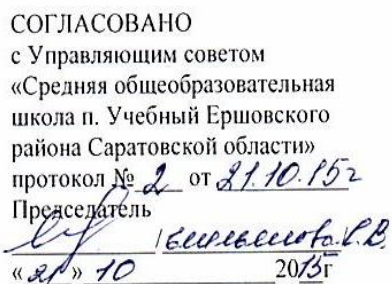 СОГЛАСОВАНО
с Управляющим советом
«Средняя общеобразовательная
школа п. Учебный Ершовского
района Саратовской области»
протокол № 2 от 21.10.15г
Председатель
«21» 10 2015г